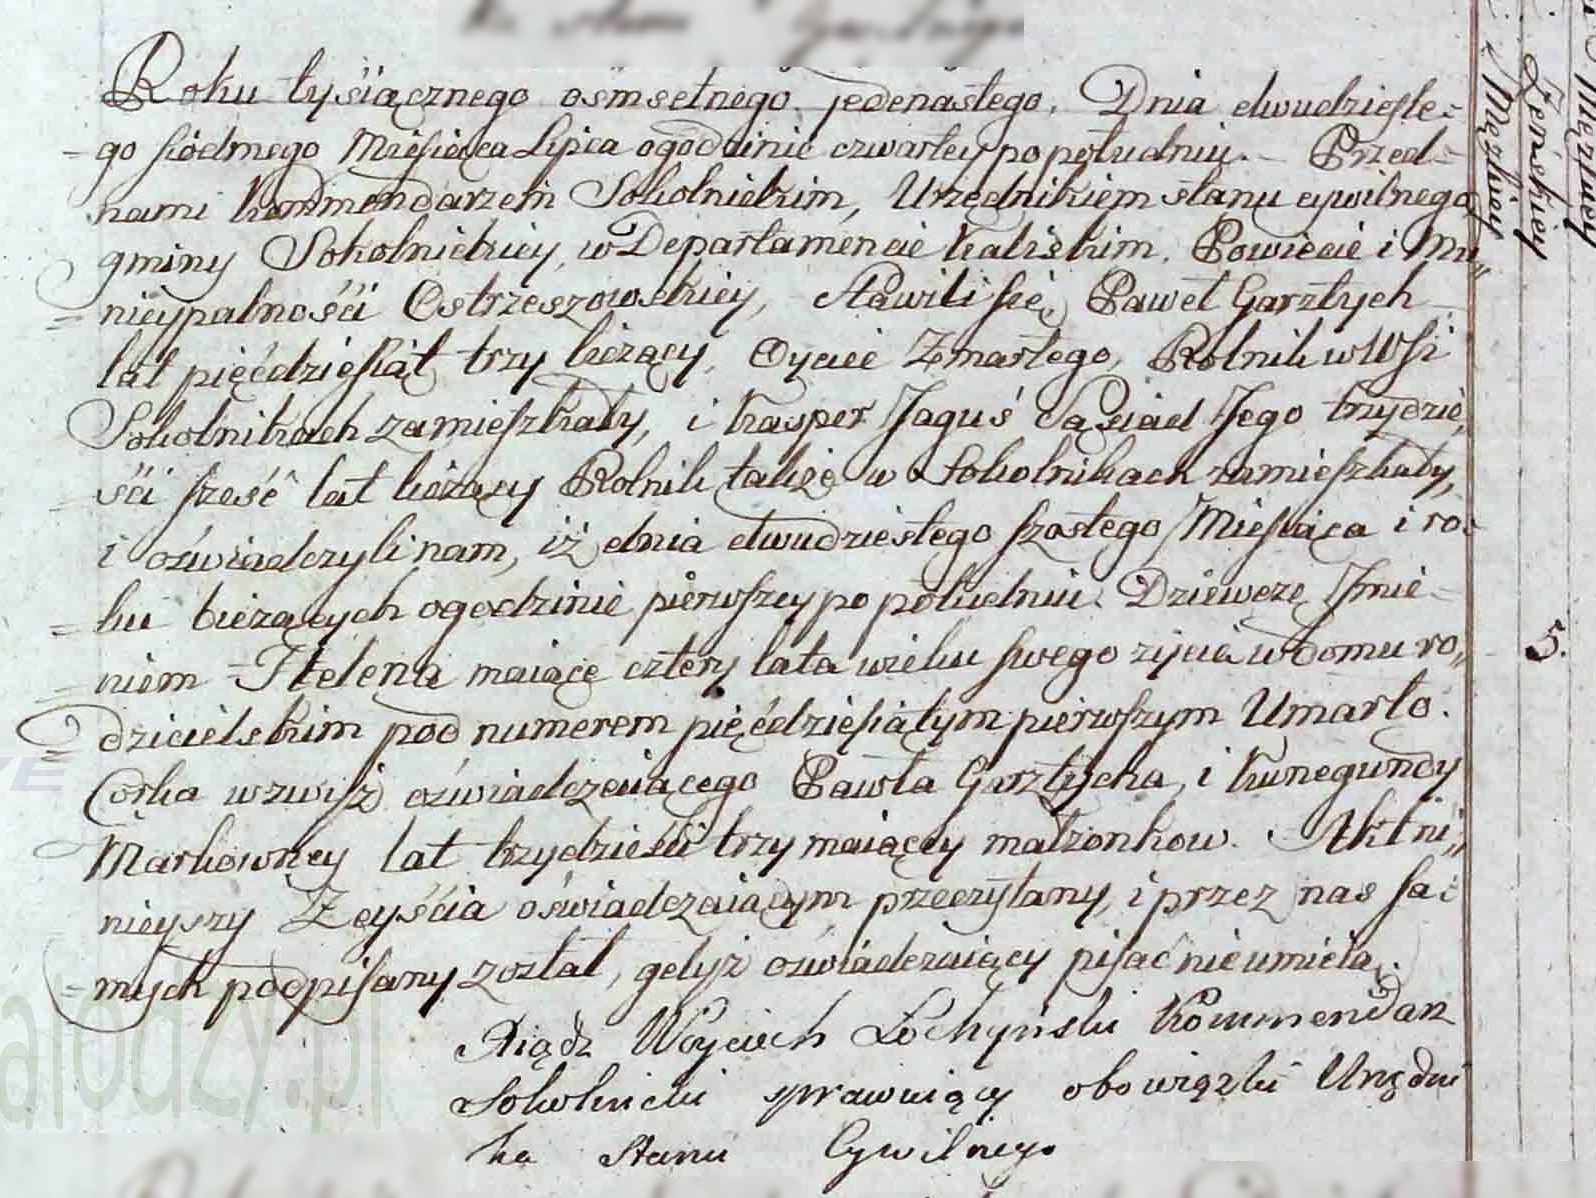 Roku tysiącznego osmsetnego jedenastego. Dnia dwudzieste-
go siodmego Miesiąca Lipca ogodzinie czwartey popołudniu. – Przed
nami Kommendarzem Sokolnickim, Urzędnikiem stanu cywilnego
gminy Sokolnickiey, w Departamencie Kaliskim, Powiecie i Mu„
nicypalności Ostrzeszowskiey, stawili się, Paweł Garztych
lat pięćdziesiąt trzy liczący, Oyciec Zmarłego, Rolnik w Wsi
Sokolnikach zamieszkały, i Kasper Jaguś Sąsiad Jego trzydzie„
ści sześć lat liczący Rolnik także w Sokolnikach zamieszkały,
i oświadczyli nam, iż dnia dwudziestego szostego Miesiąca i ro-
ku bieżących ogodzinie pierwszey po południu. Dziewczę Jmie-
niem Helena maiące cztery lata wieku swego życia w domu ro„
dzicielskim pod numerem pięćdziesiątym pierwszym Umarło.
Corka wzwyż oświadczaiącego Pawła Garztycha, i Kunegundy
Markowney lat trzydzieści trzy maiącey małżonkow. Akt ni„
nieyszy Zeyścia oświadczaiącym przeczytany, i przez nas sa-
mych podpisany został, gdyż oświadczaiący pisać nieumieią.
Xiądz Woyciech Łochyński Kommendarz
Sokolnicki sprawuiący obowiązki Urzędni
ka Stanu Cywilnego
Męzkiey
Żeńskiey
5.